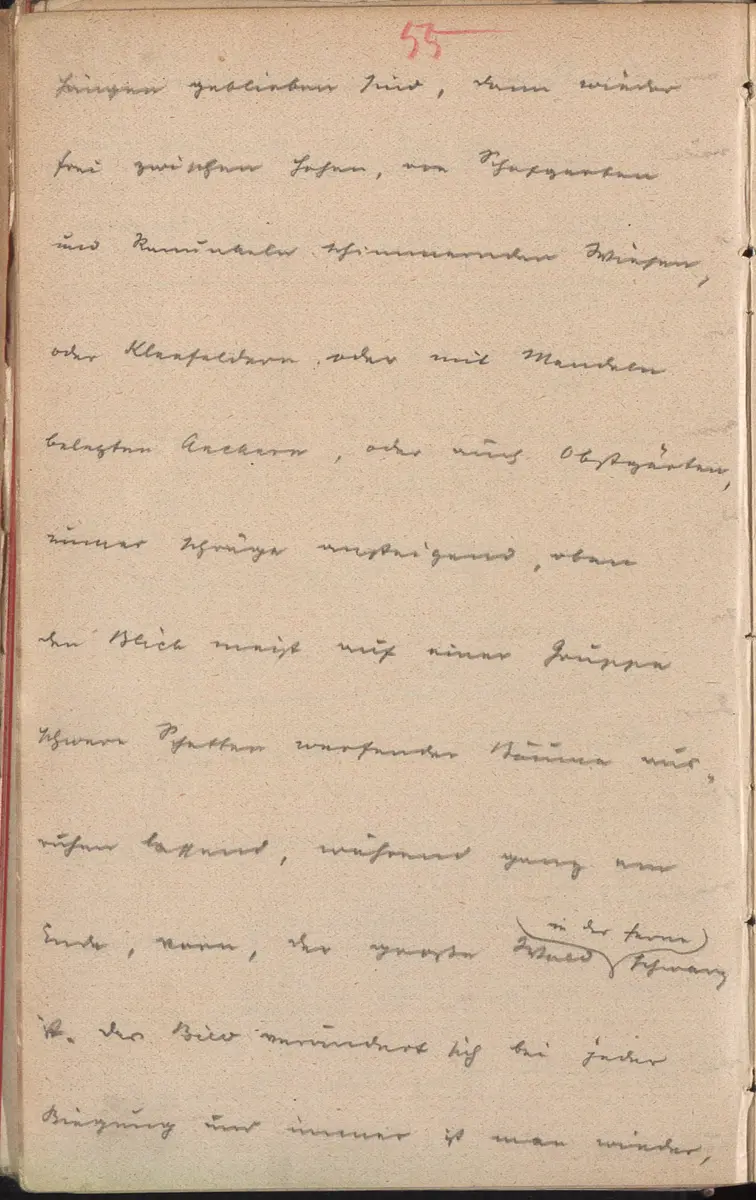 55
hängen geblieben sind, dann wieder
frei zwischen hohen, von Schafgarben
und Ranunkeln schimmernden Wiesen,
oder Kleefeldern oder mit Mandeln
belegten Aeckern, oder auch Obstgärten,
immer schräge ansteigend, oben
den Blick meist auf einer Gruppe
schwere Schatten werfender Bäume aus-
ruhen lassend, während ganz am
in der Ferne
Ende, vorn, der grosse Wald schwarz
ist. Das Bild verändert sich bei jeder
Biegung und immer ist man wieder,